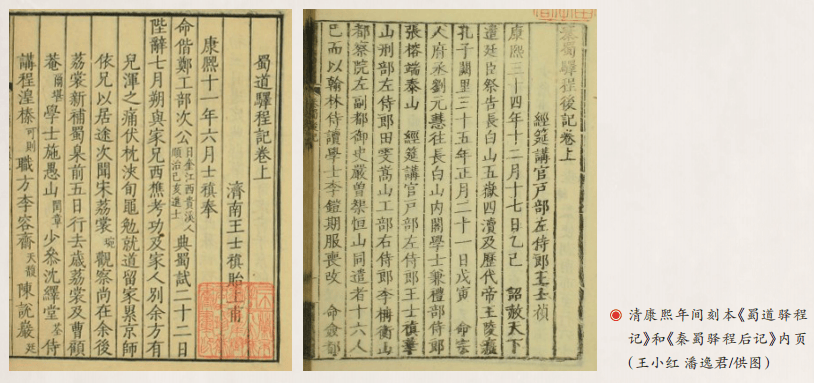 蜀道驛程記卷上
濟南王士禛貽上甫
康熙十一年六月士禛奉
命偕鄭工部次公日奎江西貴溪人順治己亥進士典蜀試二十二日
陛辭七月朔與家兄西樵考功及家人別余方有
兒渾之痛伏枕浹旬黽勉就道留家累京師
依兄以居途次聞宋荔裳琬觀察尚在余後
荔裳新補蜀臬前五日行去歲荔裳及曹顧
菴爾堪學士施愚山閏章少叅沈繹堂荃侍
講程湟榛可則職方李容齋天馥陳說巖廷
秦蜀驛程後記卷上
經筵講官戶部左侍郎王士禎
康熙三十四年十二月十七日乙巳 詔赦天下
遣廷臣祭告長白山五嶽四瀆及歷代帝王陵寢
孔子闕里三十五年正月二十一日戊寅 命宗
人府丞劉元慧往長白山內閣學士兼禮部侍郎
張榕端泰山 經筵講官戶部左侍郎王士禎華
山刑部左侍郎田雯嵩山工部右侍郎李柟衡山
都察院左副都御史嚴曾榘恒山同遣者十六人
已而以翰林侍讀學士李鎧期服喪改 命僉都
清康熙年间刻本《蜀道驿程
记》和《秦蜀驿程后记》内页
（王小红 潘逸君/供图）